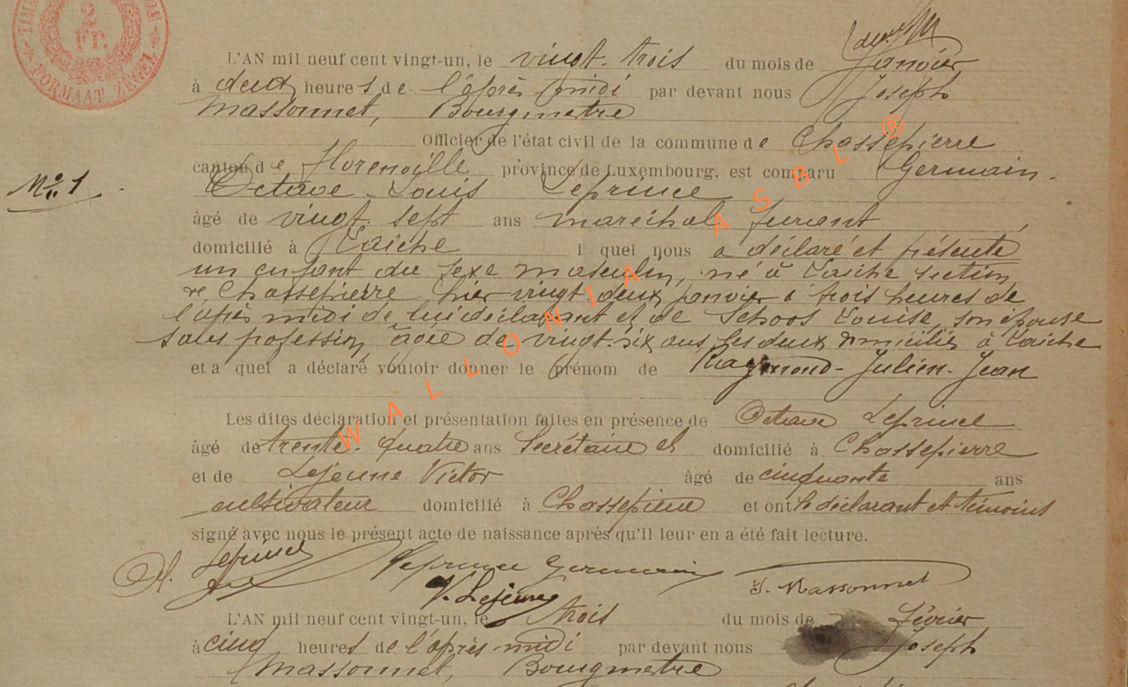 2 FR.
FORMAAT ZEGEL
L'AN mil neuf cent vingt-un, le vingt-trois du mois de Janvier
à deux heures de l'après midi par devant nous Joseph
Massonnet, Bourgmestre
Officier de l'état civil de la commune de Chassepierre
canton de Florenville province de Luxembourg, est comparu Germain-
Octave-Louis Leprince
N° 1
âgé de vingt-sept ans maréchal ferrant
domicilié à Laiche l quel nous a déclaré et présenté
un enfant du sexe masculin, né à Laiche section
de Chassepierre hier vingt-deux janvier à trois heures de
l'après midi de lui déclarant et de Schoos Louise, son épouse
sans profession âgée de vingt-six ans, les deux domiciliés à Laiche
et a quel a déclaré vouloir donner le prénom de Raymond-Julien-Jean
Les dites déclaration et présentation faites en présence de Octave Leprince
âgé de trente-quatre ans Secrétaire et domicilié à Chassepierre
et de Lejeune Victor âgé de cinquante ans
cultivateur domicilié à Chassepierre et ont le déclarant et témoins
signé avec nous le présent acte de naissance après qu'il leur en a été fait lecture.
Leprince Leprince Germain J. Massonnet
V. Lejeune
L'AN mil neuf cent vingt-un, le trois du mois de Février
à cinq heures de l'après-midi par devant nous Joseph
Massonnet, Bourgmestre
WALLONIA ASBL ®